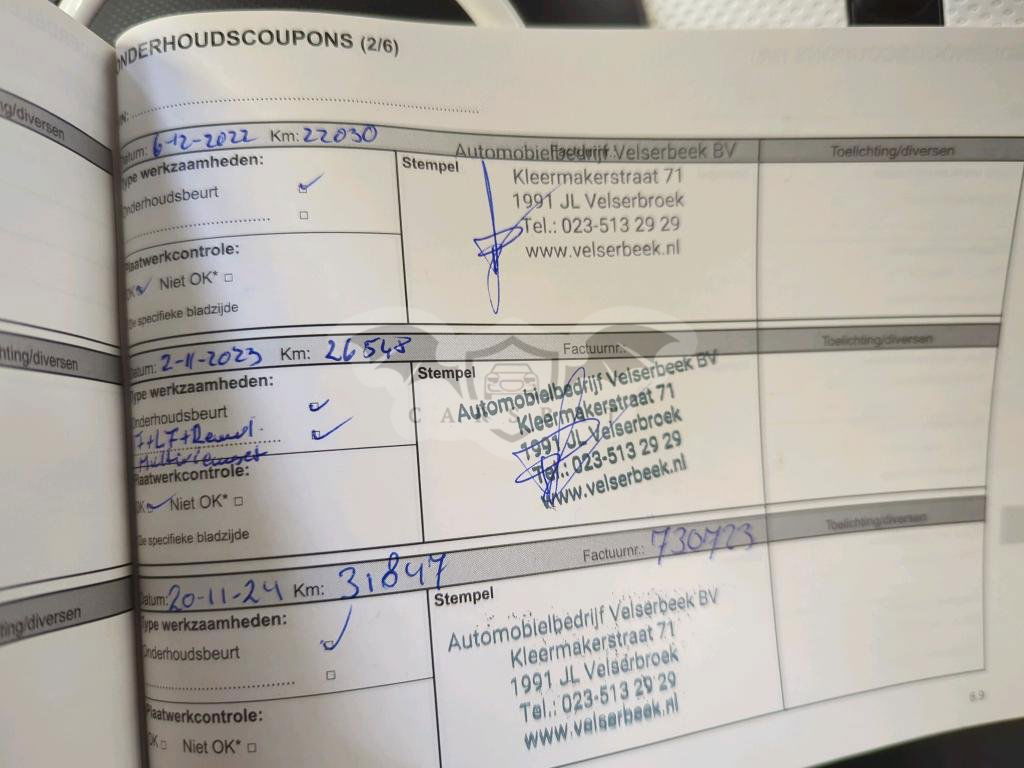 ONDERHOUDSCOUPONS (2/6)
ng/diversen
Datum: 6-12-2022 Km: 22030
Factuurnr.:
Toelichting/diversen
Type werkzaamheden:
Onderhoudsbeurt
Stempel
Automobielbedrijf Velserbeek BV
Kleermakerstraat 71
1991 JL Velserbroek
Tel.: 023-513 29 29
www.velserbeek.nl
Plaatwerkcontrole:
OK Niet OK*
*Zie specifieke bladzijde
hting/diversen
Datum: 2-11-2023 Km: 26548
Factuurnr.:
Toelichting/diversen
Type werkzaamheden:
Onderhoudsbeurt
Stempel
Automobielbedrijf Velserbeek BV
Kleermakerstraat 71
1991 JL Velserbroek
Tel.: 023-513 29 29
www.velserbeek.nl
CARS
Plaatwerkcontrole:
OK Niet OK*
*Zie specifieke bladzijde
hting/diversen
Datum: 20-11-24 Km: 31847
Factuurnr.: 730723
Toelichting/diversen
Type werkzaamheden:
Onderhoudsbeurt
Stempel
Automobielbedrijf Velserbeek BV
Kleermakerstraat 71
1991 JL Velserbroek
Tel.: 023-513 29 29
www.velserbeek.nl
Plaatwerkcontrole:
OK Niet OK*
6.9